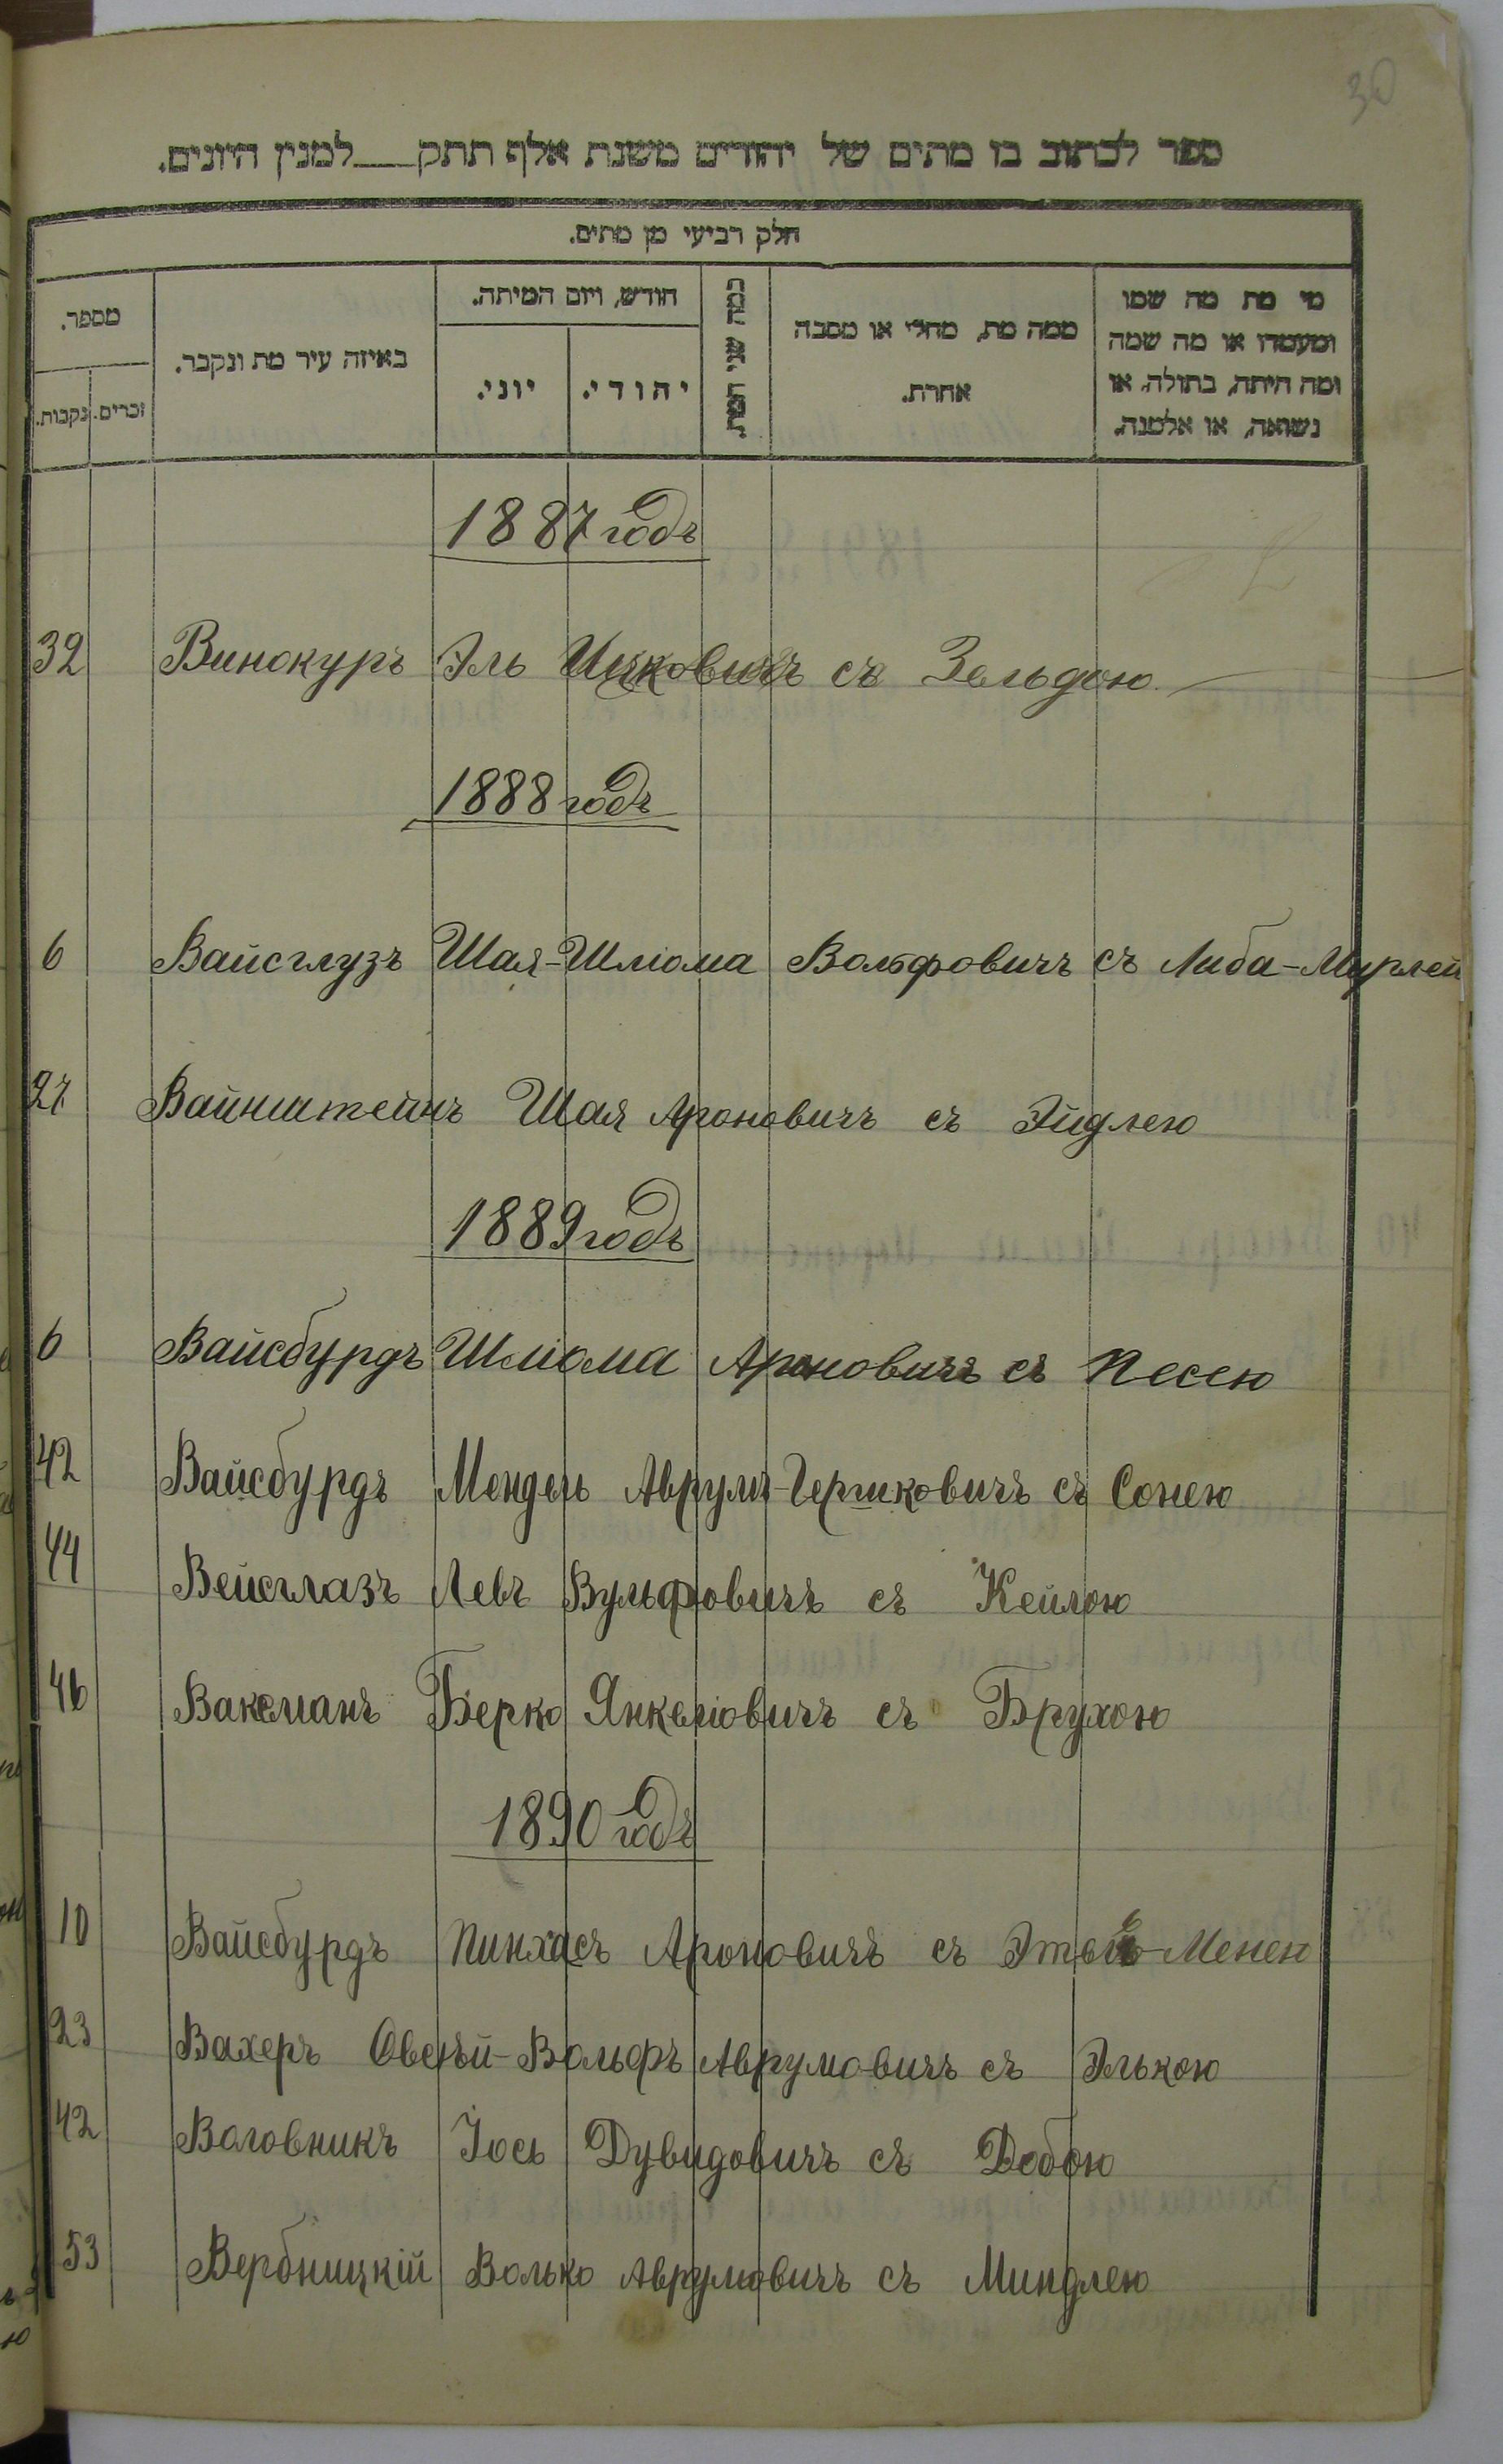 30
ספר לכתוב בו מתים של יהודים משנת אלף תתק___למנין היונים.
חלק רביעי מן מתים.
מי מת מה שמו ומעמדו או מה שמה ומה היתה, בתולה, או נשואה, או אלמנה.
ממה מת, מחלי או מסבה אחרת.
כמה שני המת.
חודש, ויום המיתה.
יהודי.
יוני.
באיזה עיר מת ונקבר.
מספר.
זכרים.
נקבות.
1887 годъ
32 Винокуръ Эль Ицковичъ съ Зельдою
1888 годъ
6 Вайсглузъ Шая-Шліома Вольфовичъ съ Либа-Мурлей
27 Вайнштейнъ Шая Ароновичъ съ Эйдлею
1889 годъ
6 Вайсбурдъ Шліома Ароновичъ съ Песею
42 Вайсбурдъ Мендель Аврумъ-Гершковичъ съ Сонею
44 Вейсглазъ Левъ Вульфовичъ съ Кейлою
46 Ваксманъ Берко Янкеліовичъ съ Брухою
1890 годъ
10 Вайсбурдъ Пинхасъ Ароновичъ съ Менен
23 Вахеръ Овсѣй-Вольфъ Аврумовичъ съ Элькою
42 Воловникъ Іось Дувидовичъ съ Добою
53 Вербницкій Волько Аврумовичъ съ Миндлею